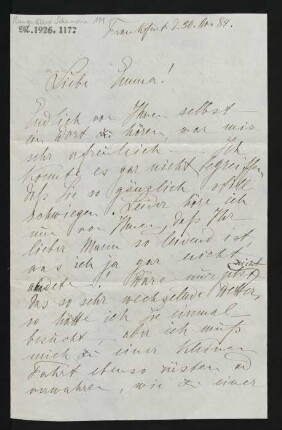 DLA.1926.1177
Frankfurt d. 30. Nov 89.
Liebe Emma!
Endlich von Ihnen selbst
ein Wort zu hören war mir
sehr erfreulich. Ich
konnte es gar nicht begreifen,
daß Sie so gänzlich still
schwiegen. Leider höre ich
nun von Ihnen, daß Ihr
lieber Mann so leidend ist
was ich ja gar nicht
ahndete! Wäre nur jetzt
das so sehr wechselnde Wetter,
so hätte ich Sie einmal
besucht, aber ich muß
mich zu einer kleinen
Fahrt ebenso rüsten und
verwahren, wie zu einer